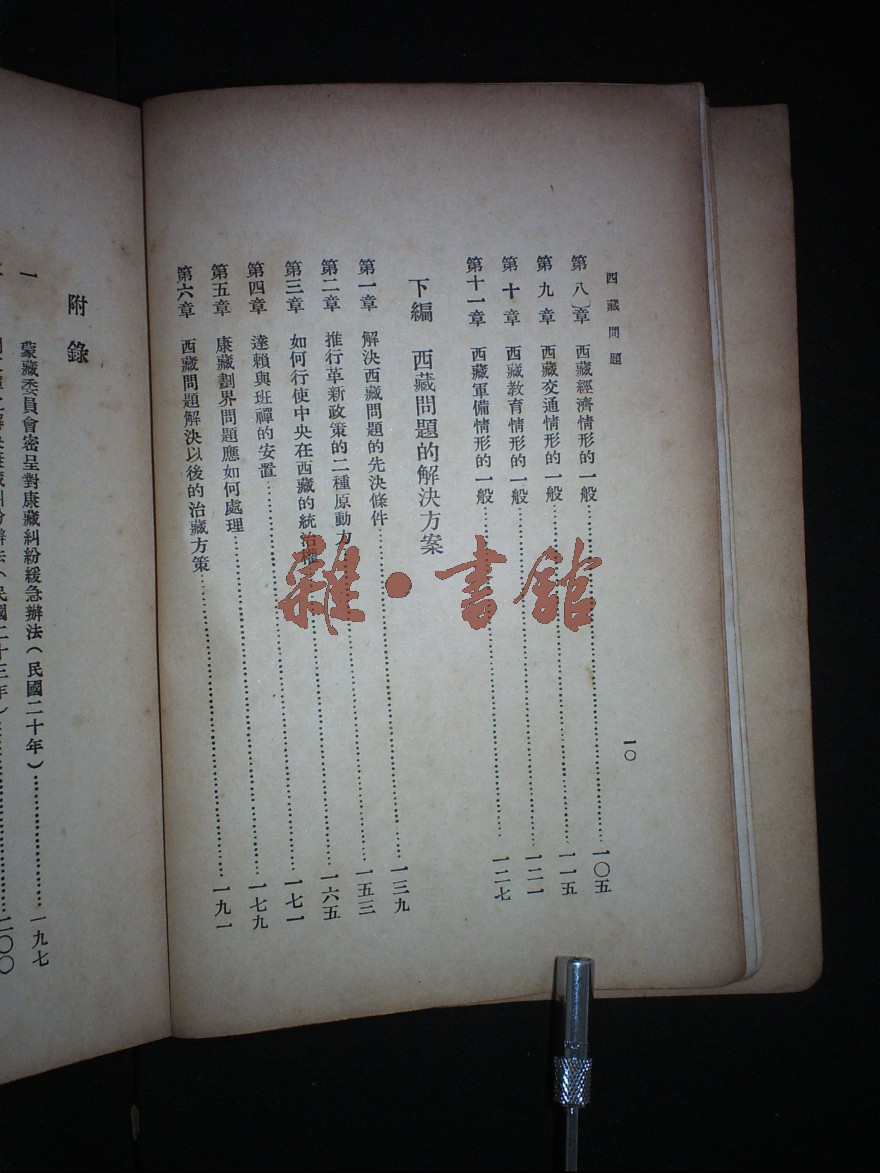 西藏問題
一〇
第八章 西藏經濟情形的一般……一〇五
第九章 西藏交通情形的一般……一一五
第十章 西藏教育情形的一般……一二一
第十一章 西藏軍備情形的一般……一二七
下編 西藏問題的解決方案
第一章 解決西藏問題的先決條件……一三九
第二章 推行革新政策的二種原動力……一五三
第三章 如何行使中央在西藏的統治權……一六五
第四章 達賴與班禪的安置……一七一
第五章 康藏劃界問題應如何處理……一七九
第六章 西藏問題解決以後的治藏方策……一九一
附錄
一 蒙藏委員會密呈對康藏糾紛緩急辦法(民國二十年)……一九七
辦法(民國二十三年)……二〇〇
雜·書館